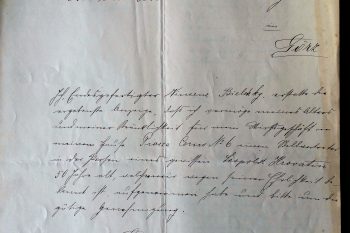 in
Görz
Ich Endesgefertigter Vincenz Bielsky, erstatte die
ergebenste Anzeige daß ich vermöge meines Alters
und meiner Kränklichkeit für mein Wirthsgeschäft in
meinem Hause Piazza Corno N: 6 einen Stellvertreter
in der Person eines gewissen Leopold Hrovatin
56 Jahre alt, welcher wegen seiner Ehrlichkeit be
kannt ist aufgenommen habe und bitte um die
gütige Genehmigung.